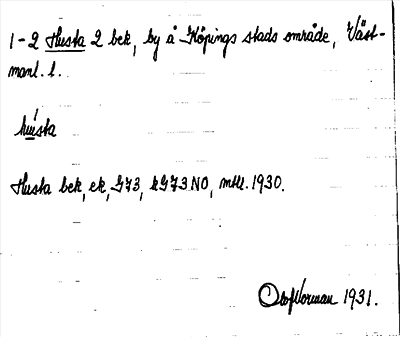 1-2 Husta 2 bek, by å Köpings stads område, Väst-
manl. l.
husta
Husta bek, ek, G73, kG73NO, mtl. 1930.
Olof Norman 1931.